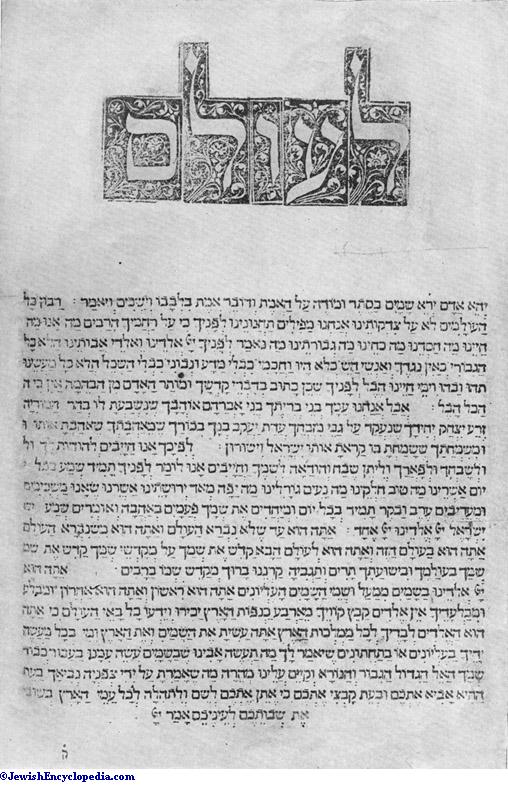 לעולם
יהא אדם ירא שמים בסתר ומודה על האמת ודובר אמת בלבבו וישכים ויאמר : רבון כל
העולמים לא על צדקותינו אנחנו מפילים תחנונינו לפניך כי על רחמיך הרבים מה אנו מה
חיינו מה חסדנו מה כחינו מה גבורתינו מה נאמר לפניך יי אלדינו ואלדי אבותינו הלא כל
הגבורי כאין נגדך ואנשי השם כלא היו וחכמי כבלי מדע ונבוני כבלי השכל הלא כל מעשינו
תהו ובהו וימי חיינו הבל לפניך שכן כתוב בדברי קדשך ומותר האדם מן הבהמה אין כי ה
הכל הבל : אבל אנחנו עמך בני בריתך בני אברהם אוהבך שנשבעת לו בהר המוריה
זרע יצחק יחידך שנעקד על גבי מזבחך עדת יעקב בנך בכורך שמאהבתך שאהבת אותו ו
ומשמחתך ששמחת בו קראת אותו ישראל וישורון : לפיכך אנו חייבים להודות לך ול
ולשבחך ולפארך וליתן שבח והודאה לשמך וחייבים אנו לומר לפניך תמיד שמע בכל י
יום אשרינו מה טוב חלקנו מה נעים גורלינו מה יפה מאד ירושתינו אשרנו שאנו משכימים
ומעריבים ערב ובקר תמיד בכל יום ומיחדים את שמך פעמים באהבה ואומרים שמע יש
ישראל יי אלדינו יי אחד : אתה הוא עד שלא נברא העולם ואתה הוא משנברא העולם
אתה הוא בעולם הזה ואתה הוא לעולם הבא קדש את שמך על מקדשי שמך קדש את שמ
שמך בעולמך ובישועתך תרים ותגביה קרננו ברוך מקדש שמו ברבים : אתה הוא
יי אלדינו בשמים ממעל ושמי השמים העליונים אתה הוא ראשון ואתה הוא אחרון ומבלע
ומבלעדיך אין אלדים קבץ קוויך מארבע כנפות הארץ יכירו וידעו כל באי העולם כי אתה
הוא האלדים לבדך לכל ממלכות הארץ אתה עשית את השמים ואת הארץ ומי בכל מעשה
ידיך בעליונים או בתחתונים שיאמר לך מה תעשה אבינו שבשמים עשה עמנו בעבור כבוד
שמך האל הגדול הגבור והנורא וקיים עלינו מהרה מה שאמרת על ידי צפניה נביאך בעת
ההיא אביא אתכם ובעת קבצי אתכם כי אתן אתכם לשם ולתהלה לכל עמי הארץ בשובי
את שבותכם לעיניכם אמר יי
©JewishEncyclopedia.com